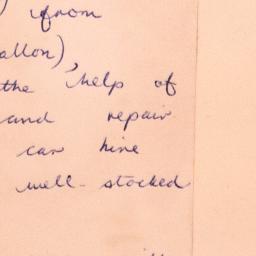 ) from
allon)
the help of
and repair
can hire
well-stocked